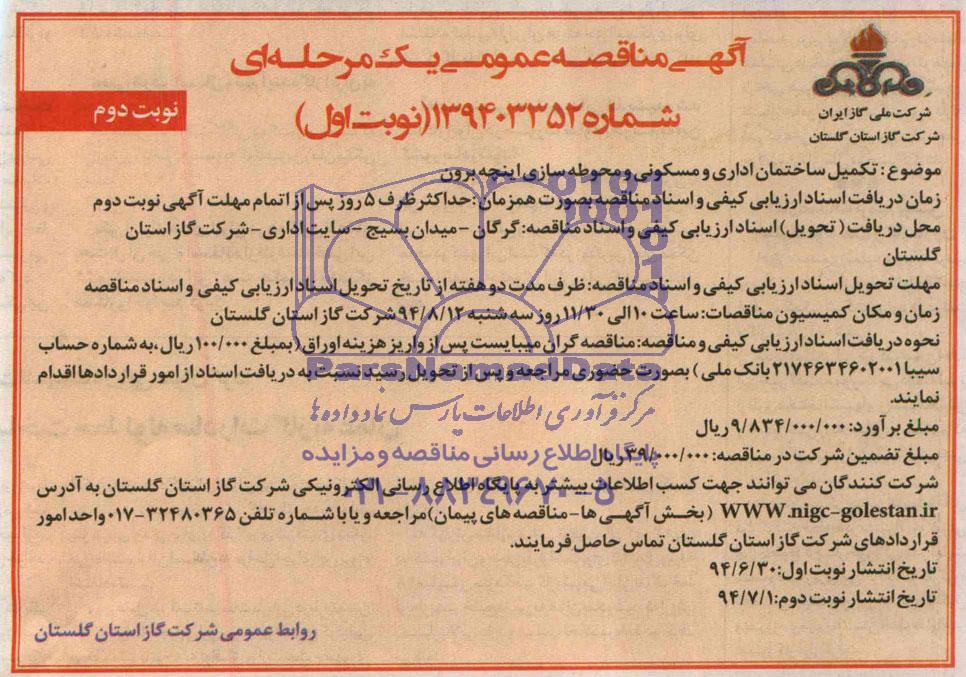 آگهی مناقصه عمومی یک مرحله‌ای
شماره ۱۳۹۴۰۳۳۵۲ (نوبت اول)
نوبت دوم
شرکت ملی گاز ایران
شرکت گاز استان گلستان
موضوع : تکمیل ساختمان اداری و مسکونی و محوطه سازی اینچه برون
زمان دریافت اسناد ارزیابی کیفی و اسناد مناقصه بصورت همزمان : حداکثر ظرف ۵ روز پس از اتمام مهلت آگهی نوبت دوم
محل دریافت ( تحویل) اسناد ارزیابی کیفی و اسناد مناقصه: گرگان - میدان بسیج - سایت اداری - شرکت گاز استان
گلستان
مهلت تحویل اسناد ارزیابی کیفی و اسناد مناقصه: ظرف مدت دو هفته از تاریخ تحویل اسناد ارزیابی کیفی و اسناد مناقصه
زمان و مکان کمیسیون مناقصات: ساعت ۱۰ الی ۱۱/۳۰ روز سه شنبه ۹۴/۸/۱۲ شرکت گاز استان گلستان
نحوه دریافت اسناد ارزیابی کیفی و مناقصه: مناقصه گران میبایست پس از واریز هزینه اوراق ( بمبلغ ۱۰۰/۰۰۰ ریال،به شماره حساب
سیبا ۲۱۷۴۶۳۴۶۰۲۰۰۱ بانک ملی ) بصورت حضوری مراجعه و پس از تحویل رسید نسبت به دریافت اسناد از امور قراردادها اقدام
نمایند.
مبلغ برآورد: ۹/۸۳۴/۰۰۰/۰۰۰ ریال
مبلغ تضمین شرکت در مناقصه: ۳۹۰/۰۰۰/۰۰۰ ریال
شرکت کنندگان می توانند جهت کسب اطلاعات بیشتر به پایگاه اطلاع رسانی الکترونیکی شرکت گاز استان گلستان به آدرس
WWW.nigc-golestan.ir ( بخش آگهی ها - مناقصه های پیمان) مراجعه و یا با شماره تلفن ۳۲۴۸۰۳۶۵-۰۱۷ واحد امور
قراردادهای شرکت گاز استان گلستان تماس حاصل فرمایند.
تاریخ انتشار نوبت اول: ۹۴/۶/۳۰
تاریخ انتشار نوبت دوم: ۹۴/۷/۱
روابط عمومی شرکت گاز استان گلستان
ParsNamadData
مرکز فرآوری اطلاعات پارس نماد داده ها
پایگاه اطلاع رسانی مناقصه و مزایده
۰۲۱-۸۸۳۴۹۶۷۰-۵